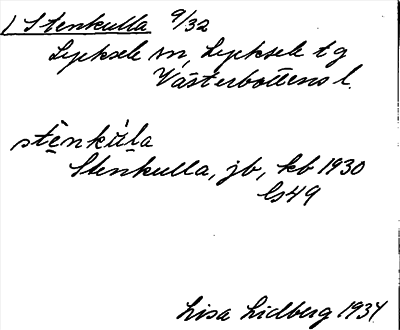 1 Stenkulla 9/32
Lycksele sn, Lycksele tg
Västerbottens l.
stènkúla
Stenkulla, jb, kb 1930
Gs49
Lisa Lidberg 1934.